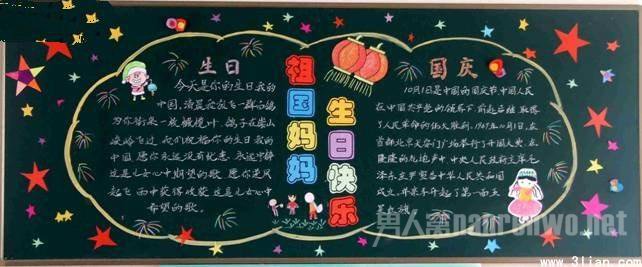 生日
今天是你的生日我的
中国,清晨我放飞一群白鸽
为你衔来一枚橄榄叶,鸽子在崇山
峻岭飞过 我们祝福你的生日我的
中国 愿你永远没有忧患 永远宁静
这是儿女心中期望的歌 愿你逆风
起飞 雨中获得收获 这是儿女心中
希望的歌.
祖国妈妈
生日快乐
国庆
10月1日是中国的国庆节.中国人民
在中国共产党的领导下,前赴后继 取得
了人民革命的伟大胜利,1949年10月1日,在
首都北京天安门广场举行了
隆隆的礼炮声中 中央人民政府主席毛
泽东庄严宣告中华人民共和国
成立,并亲手升起了第一面五
星红旗
男人窝nanrenwo.net
www.3lian.com